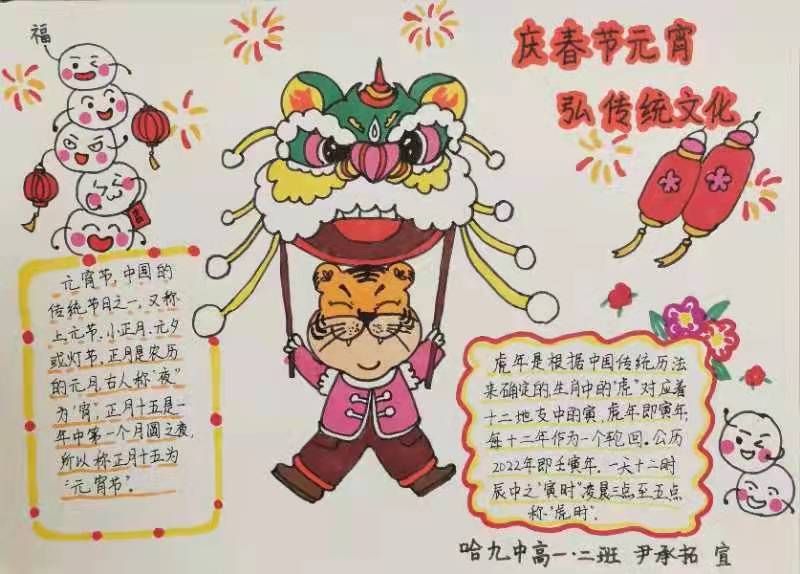 福
庆春节元宵
弘传统文化
元宵节,中国的
传统节日之一,又称
上元节、小正月、元夕
或灯节,正月是农历
的元月,古人称“夜”
为“宵”,正月十五是一
年中第一个月圆之夜,
所以称正月十五为
“元宵节”。
虎年是根据中国传统历法
来确定的,生肖中的“虎”对应着
十二地支中的寅,虎年即寅年,
每十二年作为一个轮回。公历
2022年即壬寅年.一天十二时
辰中之“寅时”凌晨三点至五点
称“虎时”.
哈九中高一·二班 尹承拓 宣